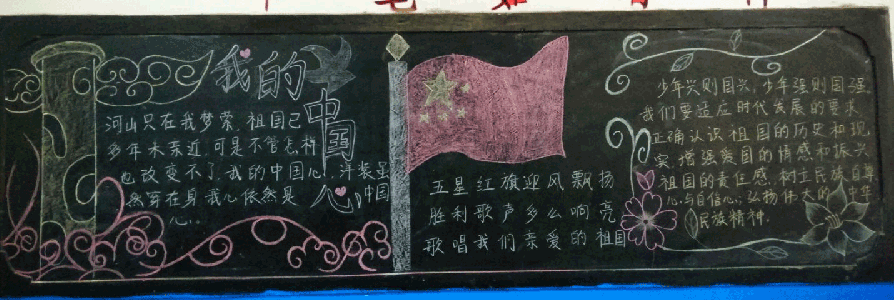 我的
中国
心
河山只在我梦萦,祖国已
多年未亲近,可是不管怎样
也改变不了,我的中国心,洋装虽
然穿在身,我心依然是中国
心。
五星红旗迎风飘扬
胜利歌声多么响亮
歌唱我们亲爱的祖国
少年兴则国兴,少年强则国强
我们要适应时代发展的要求
正确认识祖国的历史和现
实,增强爱国的情感和振兴
祖国的责任感,树立民族自尊
心与自信心;弘扬伟大的中华
民族精神